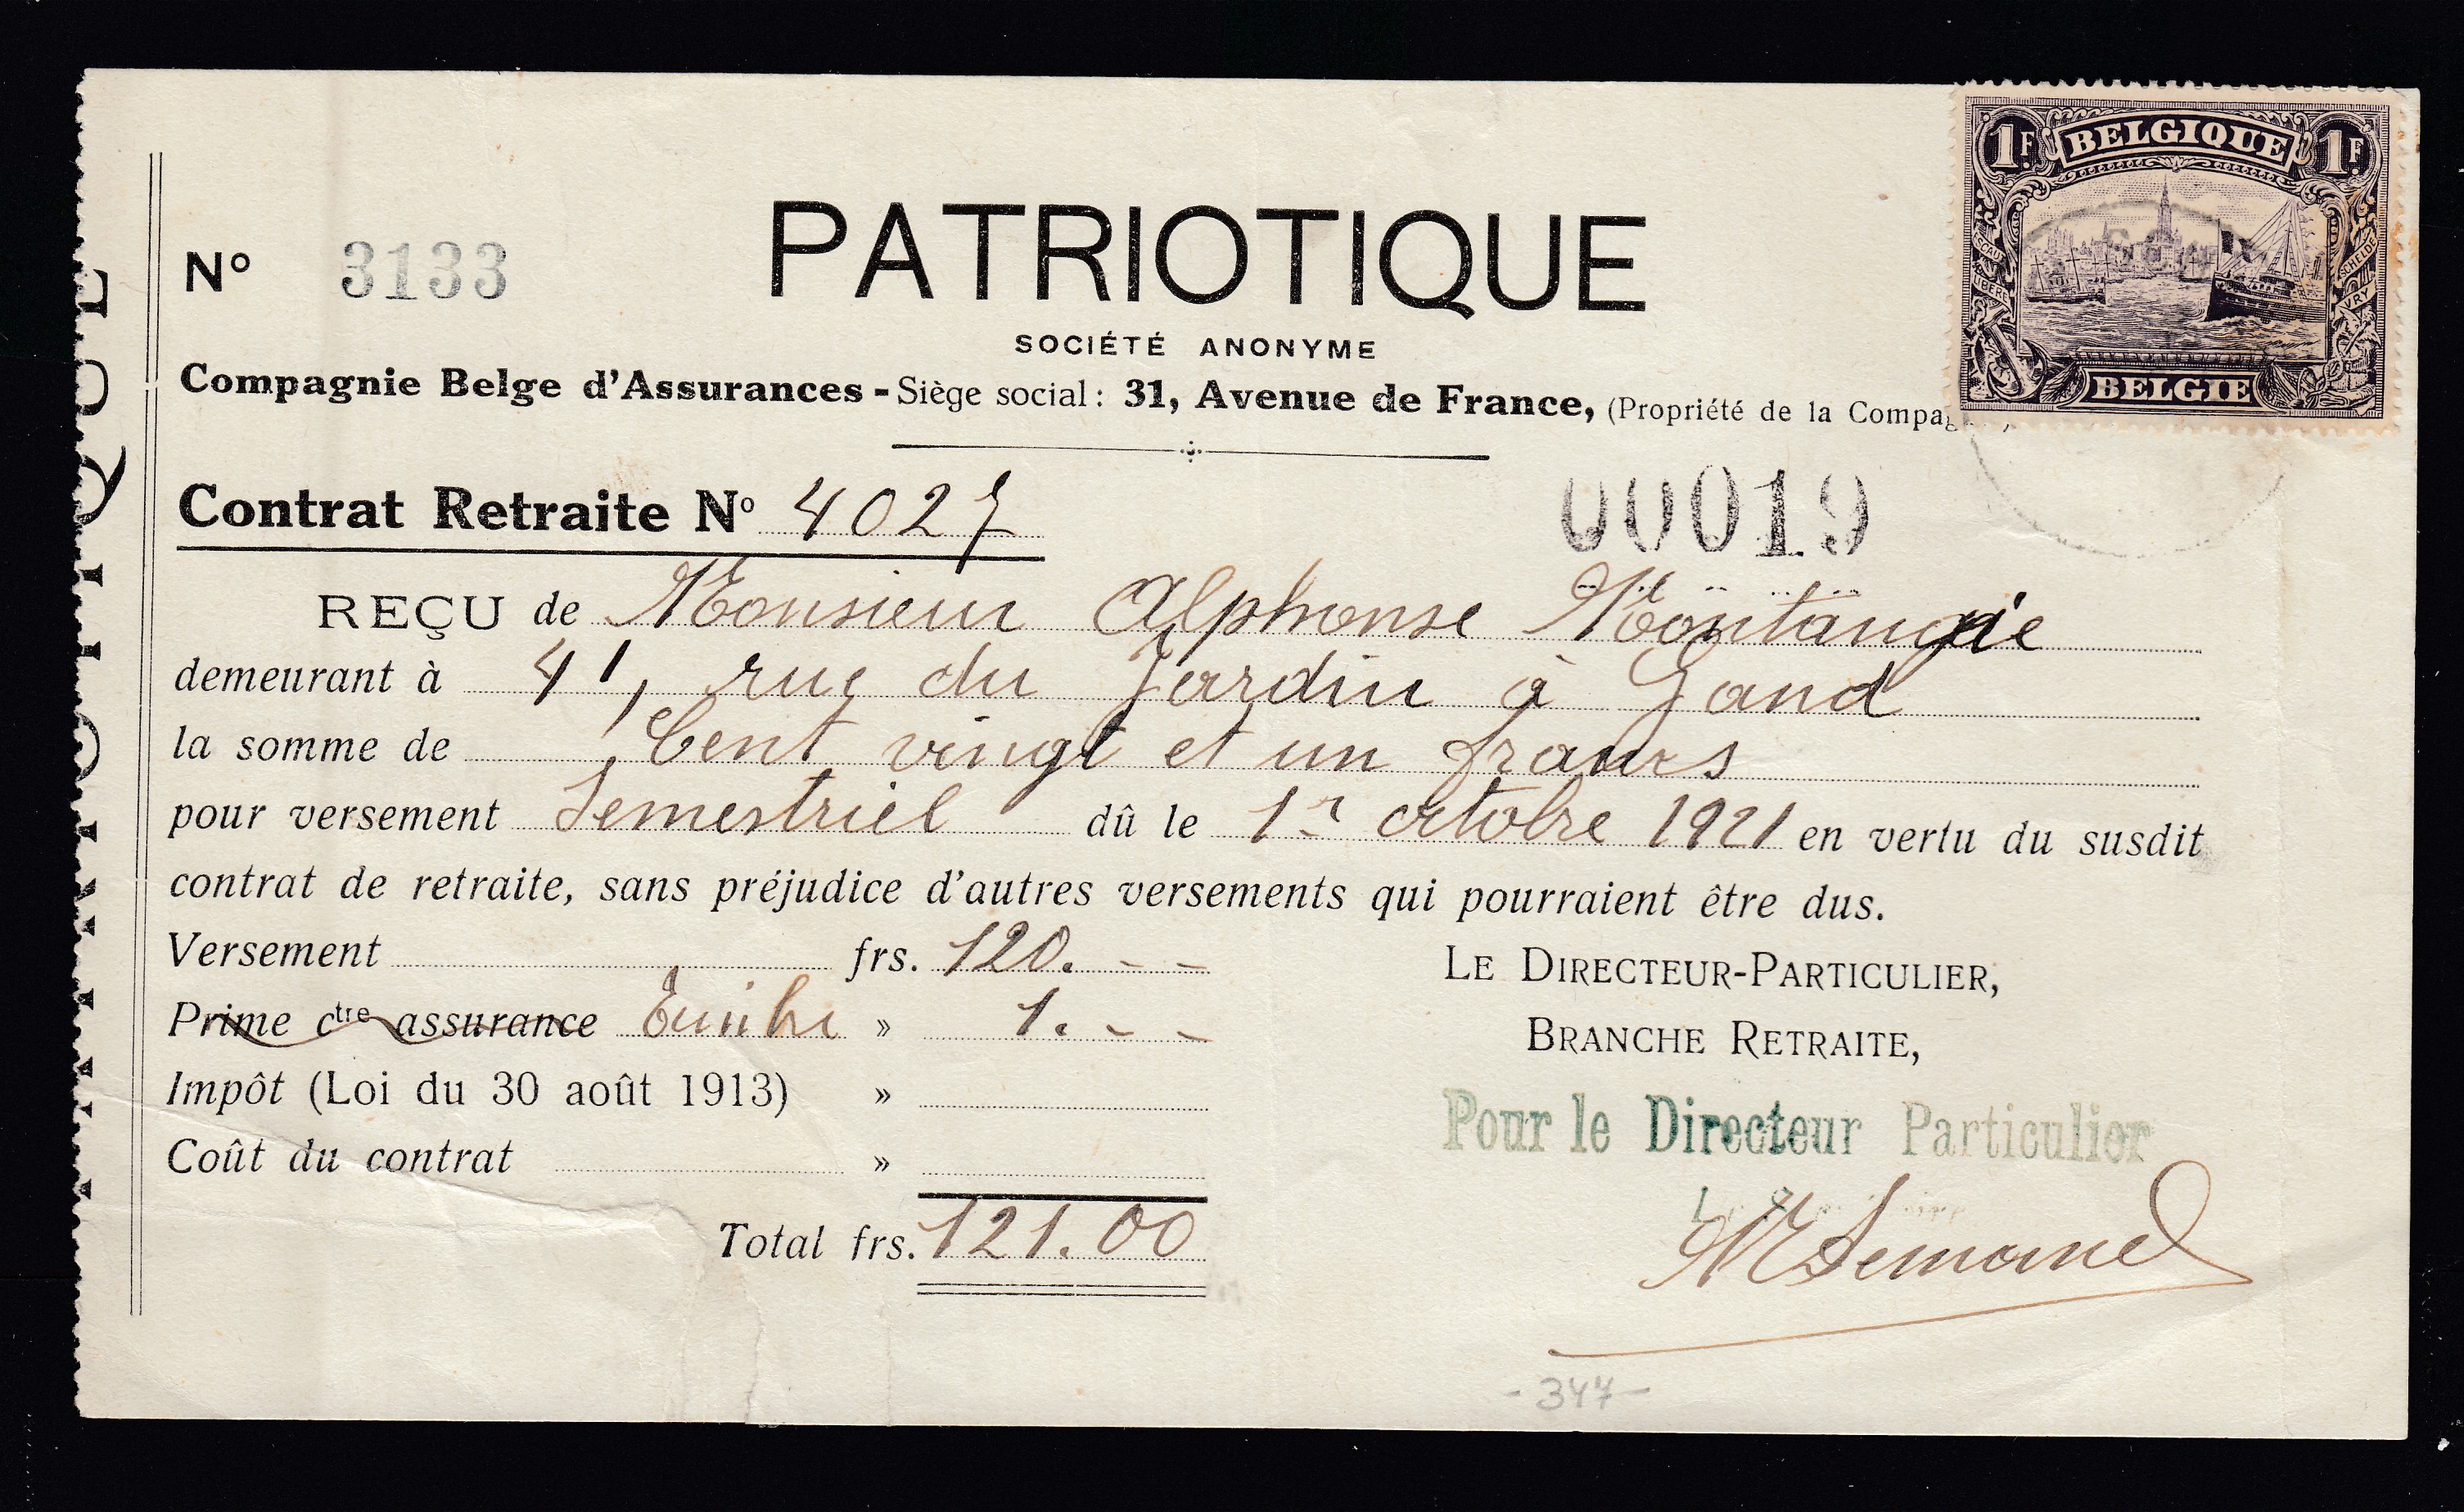 1F BELGIQUE 1F
ESCAUT LIBÉRÉ
SCHELDE VRY
BELGIË
PATRIOTIQUE
N° 3133
SOCIÉTÉ ANONYME
Compagnie Belge d'Assurances - Siège social : 31, Avenue de France, (Propriété de la
Contrat Retraite N° 4027
00019
REÇU de Monsieur Alphonse
demeurant à 41, rue du Jardin à Gand
la somme de Cent vingt et un francs
pour versement Semestriel dû le 1r octobre 1921 en vertu du susdit
contrat de retraite, sans préjudice d'autres versements qui pourraient être dus.
Versement frs. 120. - -
Prime ctre assurance Timbre » 1. - -
Impôt (Loi du 30 août 1913) »
Coût du contrat »
Total frs. 121.00
LE DIRECTEUR-PARTICULIER,
BRANCHE RETRAITE,
Pour le Directeur Particulier
- 347 -